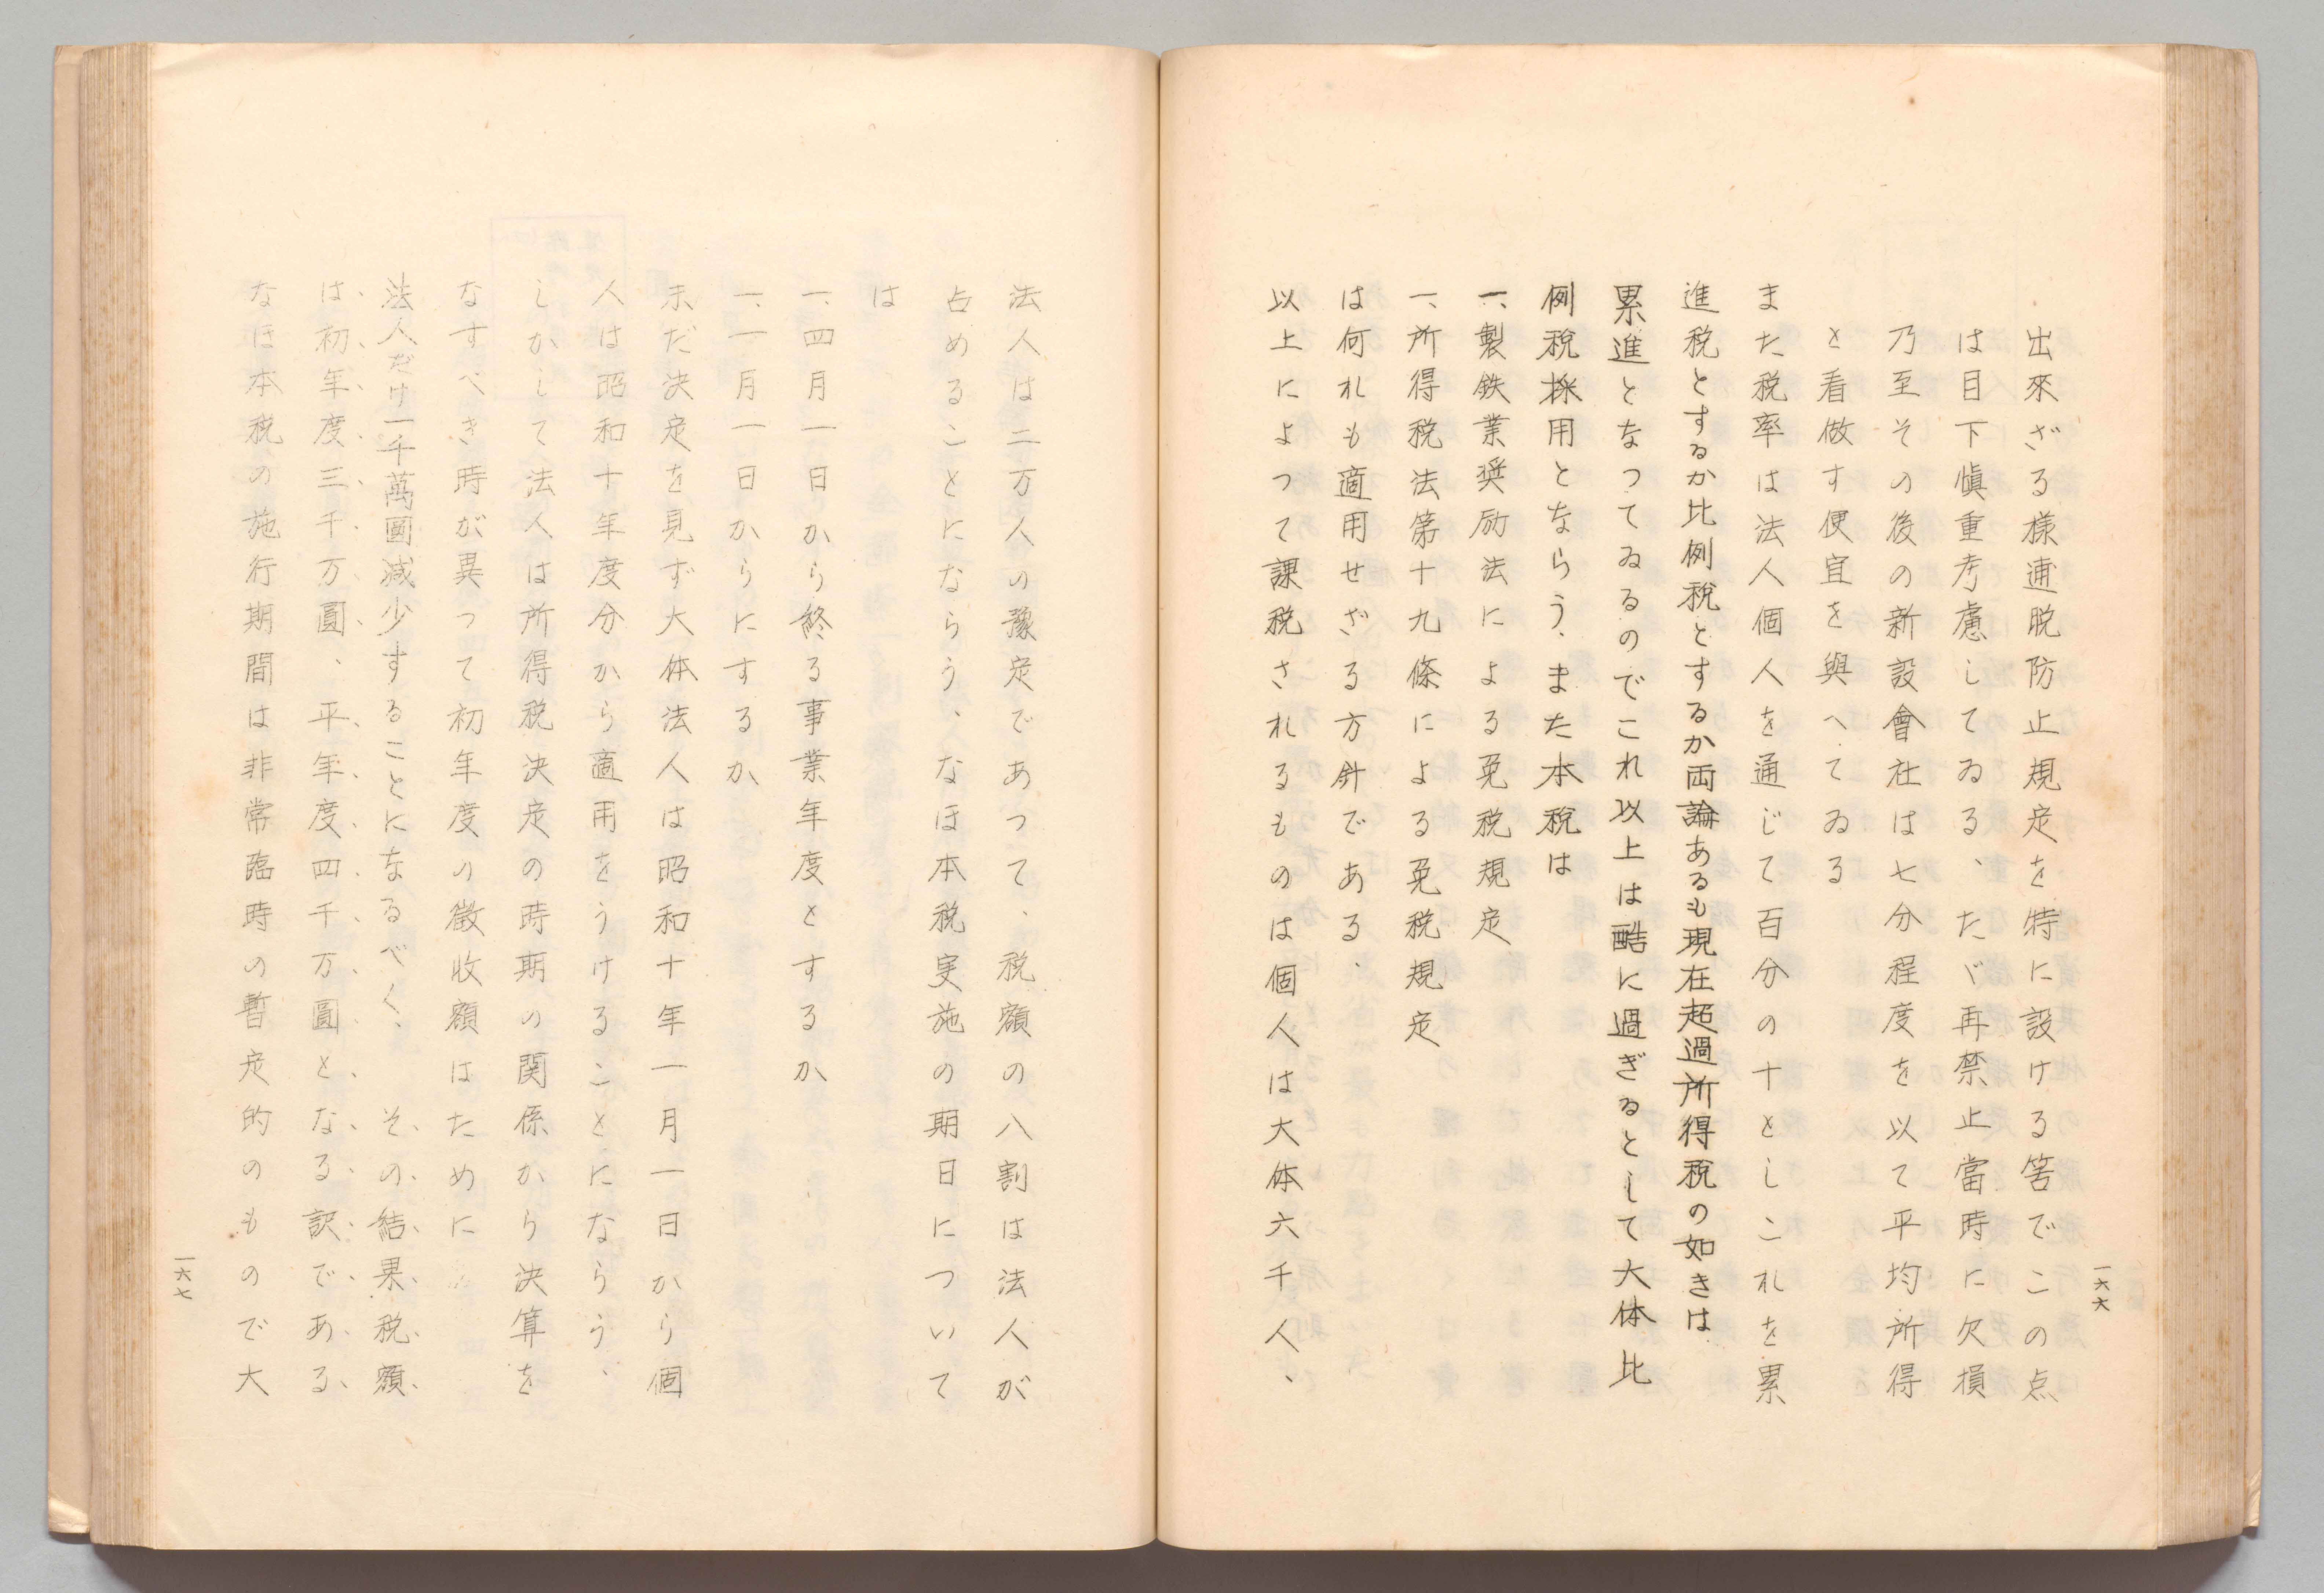 一六六
出來ざる様逋脱防止規定を特に設ける筈でこの点
は目下愼重考慮してゐる、たゞ再禁止當時に欠損
乃至その後の新設會社は七分程度を以て平均所得
と看做す便宜を與へてゐる
また税率は法人個人を通じて百分の十としこれを累
進税とするか比例税とするか両論あるも現在超過所得税の如きは
累進となつてゐるのでこれ以上は酷に過ぎるとして大体比
例税採用とならう、また本税は
一、製鉄業奨励法による免税規定
一、所得税法第十九條による免税規定
は何れも適用せざる方針である、
以上によつて課税されるものは個人は大体六千人、
法人は二万人の豫定であつて、税額の八割は法人が
占めることにならう、なほ本税実施の期日について
は
一、四月一日から終る事業年度とするか
一、一月一日からにするか
未だ決定を見ず大体法人は昭和十年一月一日から個
人は昭和十年度分から適用をうけることにならう、
しかして法人は所得税決定の時期の関係から決算を
なすべき時が異つて初年度の徴收額はために
法人だけ一千萬圓減少することになるべく、その結果税額
は初年度三千万圓、平年度四千万圓となる訳である、
なほ本税の施行期間は非常臨時の暫定的のもので大
一六七